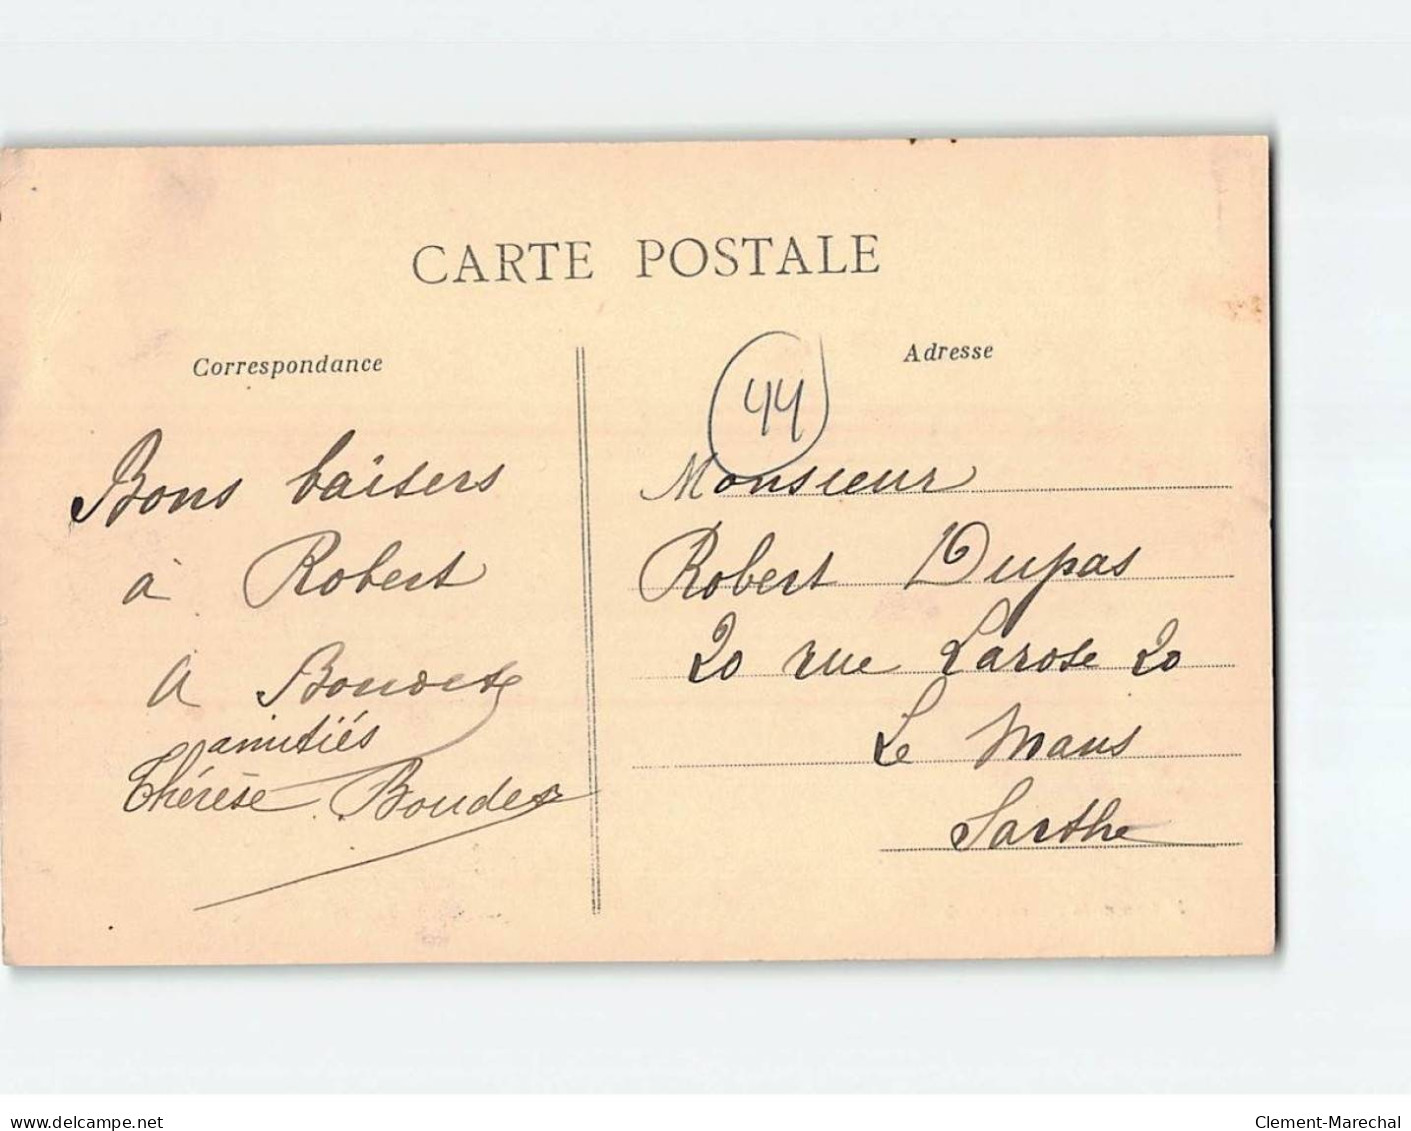 CARTE POSTALE
Correspondance
Bons baisers
à Robert
A
amitiés
Thérèse
Adresse
44
Monsieur
Robert Dupas
20 rue Larose 20
Le Mans
Sarthe
www.delcampe.net
Clement-Marechal